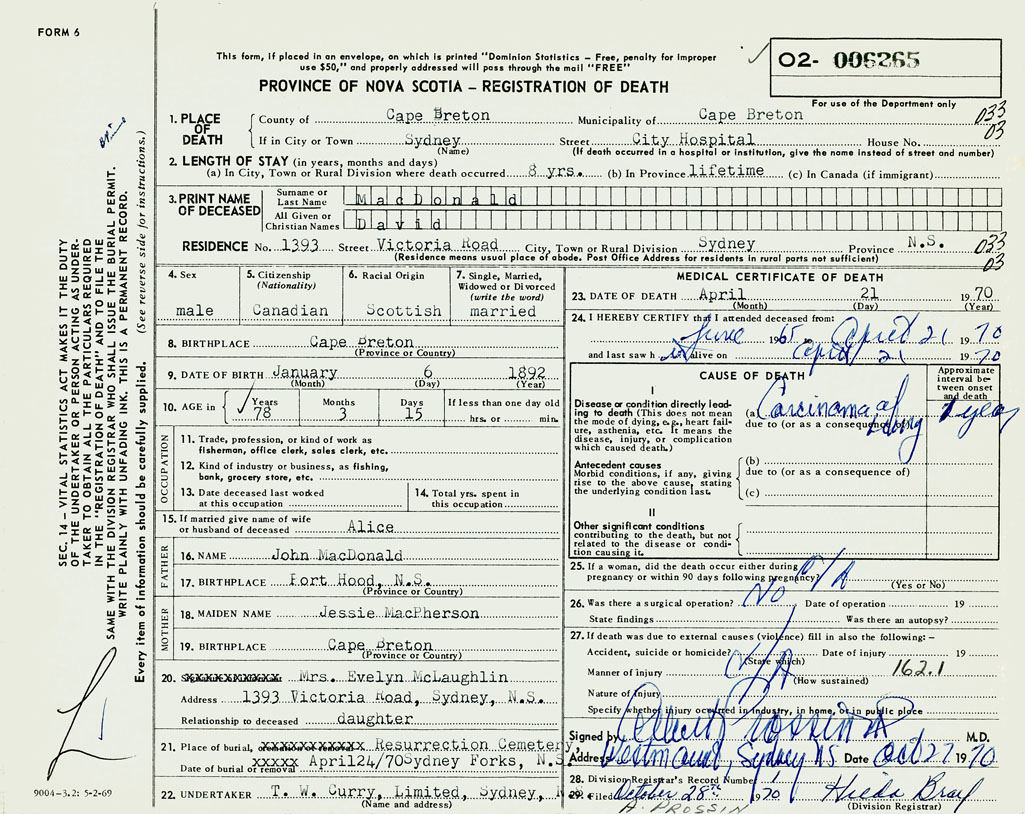 FORM 6
This form, if placed in an envelope, on which is printed "Dominion Statistics – Free, penalty for improper
use $50," and properly addressed will pass through the mail "FREE"
02- 006265
For use of the Department only
PROVINCE OF NOVA SCOTIA – REGISTRATION OF DEATH
1. PLACE OF DEATH
County of Cape Breton Municipality of Cape Breton 033
If in City or Town Sydney Street City Hospital House No. 03
(Name) (If death occurred in a hospital or institution, give the name instead of street and number)
2. LENGTH OF STAY (in years, months and days)
(a) In City, Town or Rural Division where death occurred 8 yrs. (b) In Province lifetime (c) In Canada (if immigrant)
3. PRINT NAME OF DECEASED
Surname or Last Name MacDonald
All Given or Christian Names David
RESIDENCE No. 1393 Street Victoria Road City, Town or Rural Division Sydney Province N.S. 033
(Residence means usual place of abode. Post Office Address for residents in rural parts not sufficient) 03
4. Sex
male
5. Citizenship
(Nationality)
Canadian
6. Racial Origin
Scottish
7. Single, Married,
Widowed or Divorced
(write the word)
married
8. BIRTHPLACE Cape Breton
(Province or Country)
9. DATE OF BIRTH January 6 1892
(Month) (Day) (Year)
10. AGE in Years Months Days If less than one day old
78 3 15 hrs. or min.
OCCUPATION
11. Trade, profession, or kind of work as
fisherman, office clerk, sales clerk, etc.
12. Kind of industry or business, as fishing,
bank, grocery store, etc.
13. Date deceased last worked
at this occupation
14. Total yrs. spent in
this occupation
15. If married give name of wife
or husband of deceased Alice
FATHER
16. NAME John MacDonald
17. BIRTHPLACE Port Hood, N.S.
(Province or Country)
MOTHER
18. MAIDEN NAME Jessie MacPherson
19. BIRTHPLACE Cape Breton
(Province or Country)
20. Mrs. Evelyn McLaughlin
Address 1393 Victoria Road, Sydney, N.S.
Relationship to deceased daughter
21. Place of burial, Resurrection Cemetery,
Date of burial or removal April24/70Sydney Forks, N.S.
22. UNDERTAKER T. W. Curry, Limited, Sydney, N.S.
(Name and address)
MEDICAL CERTIFICATE OF DEATH
23. DATE OF DEATH April 21 1970
(Month) (Day) (Year)
24. I HEREBY CERTIFY that I attended deceased from:
June 1965 to April 21 1970
and last saw him alive on April 21 1970
CAUSE OF DEATH
Approximate
interval be-
tween onset
and death
I
Disease or condition directly lead-
ing to death (This does not mean
the mode of dying, e.g., heart fail-
ure, asthenia, etc. It means the
disease, injury, or complication
which caused death.)
(a) Carcinoma of Lung 1 year
due to (or as a consequence of)
Antecedent causes
Morbid conditions, if any, giving
rise to the above cause, stating
the underlying condition last.
(b)
due to (or as a consequence of)
(c)
II
Other significant conditions
contributing to the death, but not
related to the disease or condi-
tion causing it.
25. If a woman, did the death occur either during
pregnancy or within 90 days following pregnancy? N/A
(Yes or No)
26. Was there a surgical operation? No Date of operation 19
State findings Was there an autopsy?
27. If death was due to external causes (violence) fill in also the following: –
Accident, suicide or homicide? Date of injury 19
(State which)
Manner of injury N/A 162.1
(How sustained)
Nature of injury
Specify whether injury occurred in industry, in home, or in public place
Signed by M.D.
Address Westmount, Sydney NS Date Oct 27 1970
28. Division Registrar's Record Number
29. Filed October 28th 1970 Hilda Bray
H. PROSSIN (Division Registrar)
SEC. 14 – VITAL STATISTICS ACT MAKES IT THE DUTY
OF THE UNDERTAKER OR PERSON ACTING AS UNDER-
TAKER TO OBTAIN ALL THE PARTICULARS REQUIRED
IN THE "REGISTRATION OF DEATH" AND TO FILE THE
SAME WITH THE DIVISION REGISTRAR WHO SHALL ISSUE THE BURIAL PERMIT.
WRITE PLAINLY WITH UNFADING INK. THIS IS A PERMANENT RECORD.
Every item of information should be carefully supplied. (See reverse side for instructions.)
9004-3.2: 5-2-69